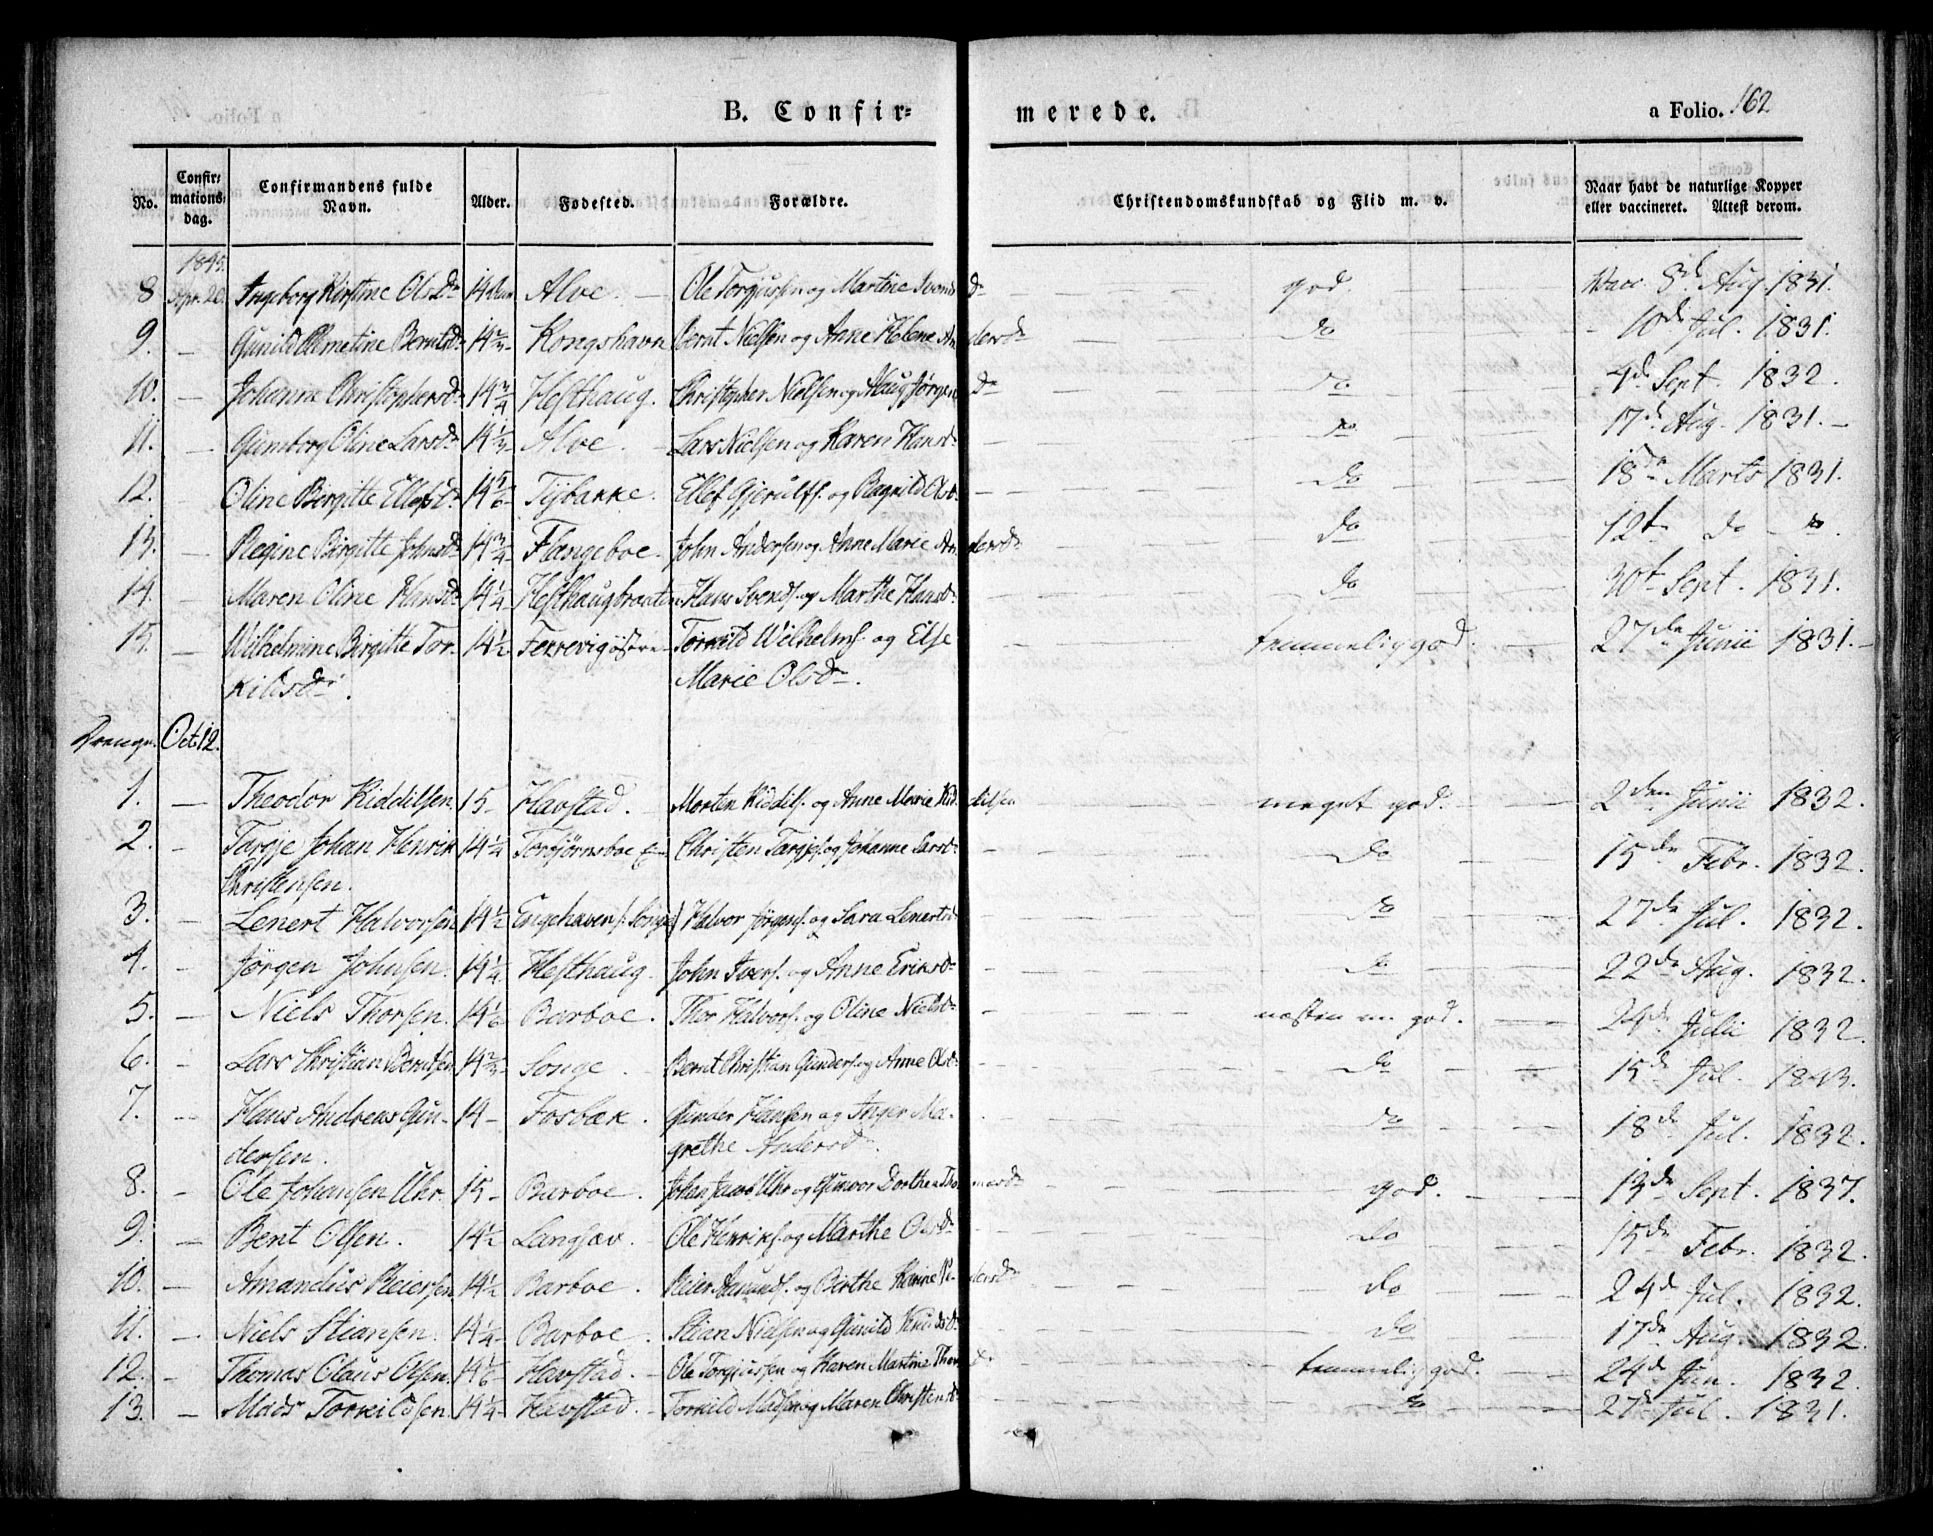 B. Confir= merede. a Folio. 162
No. Confir= mations= dag. Confirmandens fulde Navn. Alder. Fødested. Forældre. Christendomskundskab og Flid m. v. Naar havt de naturlige Kopper eller vaccineret. Attest derom.
1845.
8 Apr. 20. Ingeborg Kirstine Olsdr 14 Alve. — Ole Torjussen og Martine god Vacc. 8de Aug. 1831.
9. — Gunild Bernts dr 14 2/3 Kongshavn Bernt Nielsen og Anne Helene Andersdr do — 10de Jul. 1831.
10. — Johanne Christophersdr 14 3/4 Hesthaug. Christopher Nielsen og do 4de Sept. 1832.
11. — Gunborg Oline Larsdr 14 1/3 Alve. — Lars Nielsen og Karen Hansdr do 17de Aug. 1831. —
12. Oline Birgitte Ellefsdr 14 5/6 Tybakke. Ellef Gjerulfs. og Ragnild Olsdr do 18de Marts 1831.
13. — Regine Birgitte Johnsdr 14 3/4 Flangeboe. John Andersen og Anne Marie Andersdr do 12te do — do.
14. — Maren Oline Hansdr 14 1/4 Hesthaugbraaten Hans Svends. og Marthe Hansdr do 30te Sept. 1831.
15. — Wilhelmine Birgitte Tor- 14 1/2 Torkild Wilhelms. og Else temmelig god. 27de Junii 1831. —
kildsdr. Marie Olsdr.
Drenge. Oct. 12.
1. — Theodor Kiddilsen. 15 — Havstad. Morten Kiddils. og Anne Marie Kiddilsen meget god. 2den Junii 1832.
2. — Targje Johan Henrik 14 1/4 Torbjørnsboe Christen Targjes. og Johanne Larsdr do 15de Febr. 1832.
Christensen.
3. — Lenert Halvorsen 14 1/2 Engehaven Halvor Jørgens. og Sara Lenertsdr do 27de Jul. 1832.
4. — Jørgen Johnsen. 14 1/4 Hesthaug. John Ivers. og Anne Eriksdr do 22de Aug. 1832.
5. — Niels Thorsen. 14 1/6 Barboe. Thor Halvors. og Oline Nielsdr næsten m. god. 24de Julii 1832.
6. — Lars Christian Berntsen 14 2/3 Songe. Bernt Christian Gunders. og Anne Olsdr do 15de Jul. 1843.
7. — Hans Andreas Gun- 14 — Fosbæk. Gunder Hansen og Inger Ma- do 18de Jul. 1832.
dersen. grethe Andersdr.
8. — Ole Johansen Uhr. 15 — Barboe. Johan Uhr og Gunvor Dorthea god. 13de Sept. 1837.
9. — Bent Olsen. 14 1/2 Langsæv. Ole Henriks. og Marthe Olsdr do 15de Febr. 1832.
10. — Amandus Reiersen 14 1/2 Barboe. Reier Amunds. og Birthe Karine Pedersdr do 24de Jul. 1832.
11. — Niels Stiansen. 14 1/4 Barboe. Stian Nielsen og Gunild Knudsdr do 17de Aug. 1832.
12. — Thomas Claus Olsen. 14 1/6 Havstad. — Ole Torgiussen og Karen Martine temmelig god. 24de Jun. 1832.
13. — Mads Torkildsen. 14 1/4 Havstad. — Torkild Madsen og Maren Christensdr do 27de Jul. 1831.